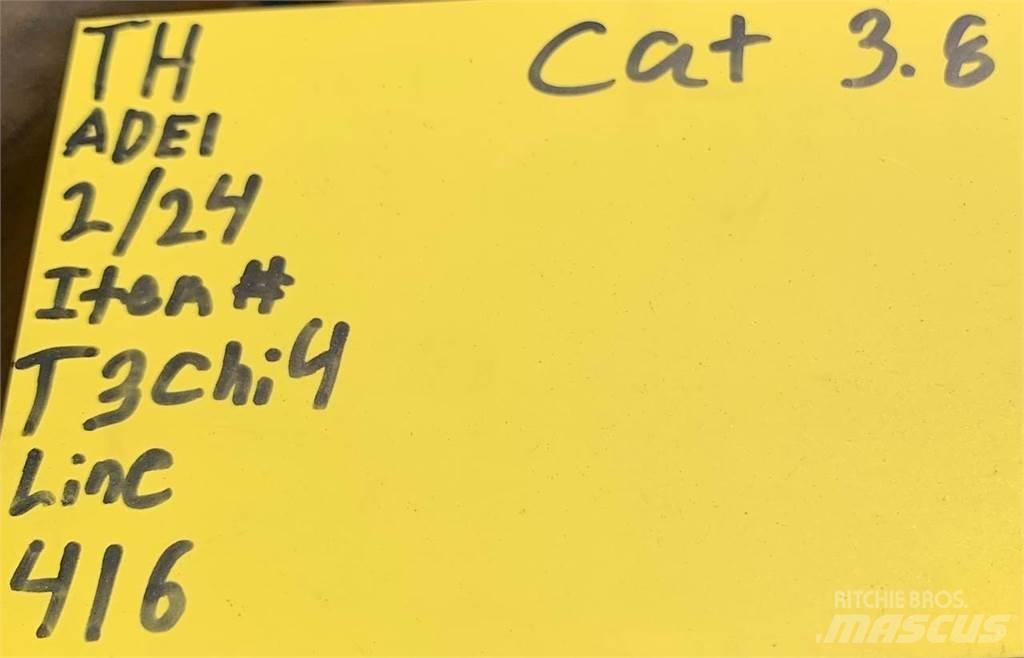 TH
Cat 3.8
ADEI
2/24
Item #
T3Chi4
Line
416
RITCHIE BROS.
MASCUS